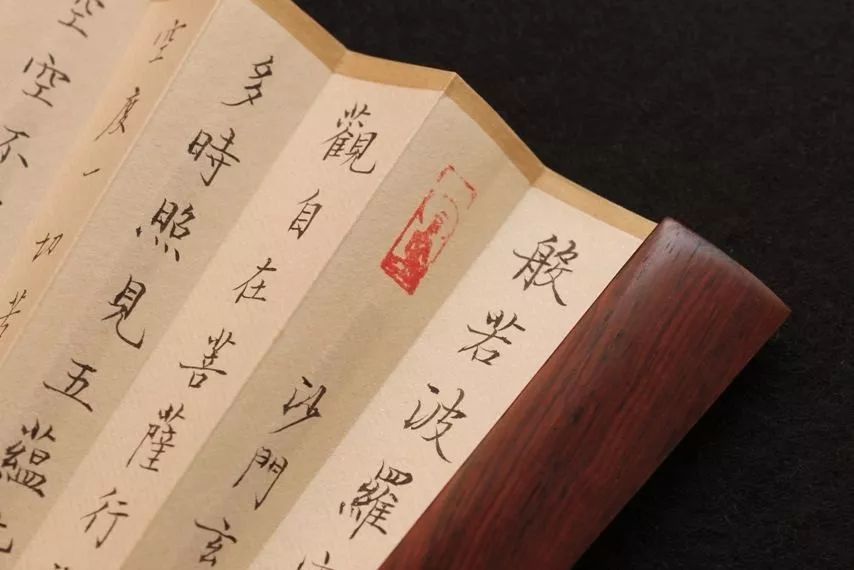 般若波羅
沙門玄
觀自在菩薩行
多時照見五蘊
空度一切苦
空空不